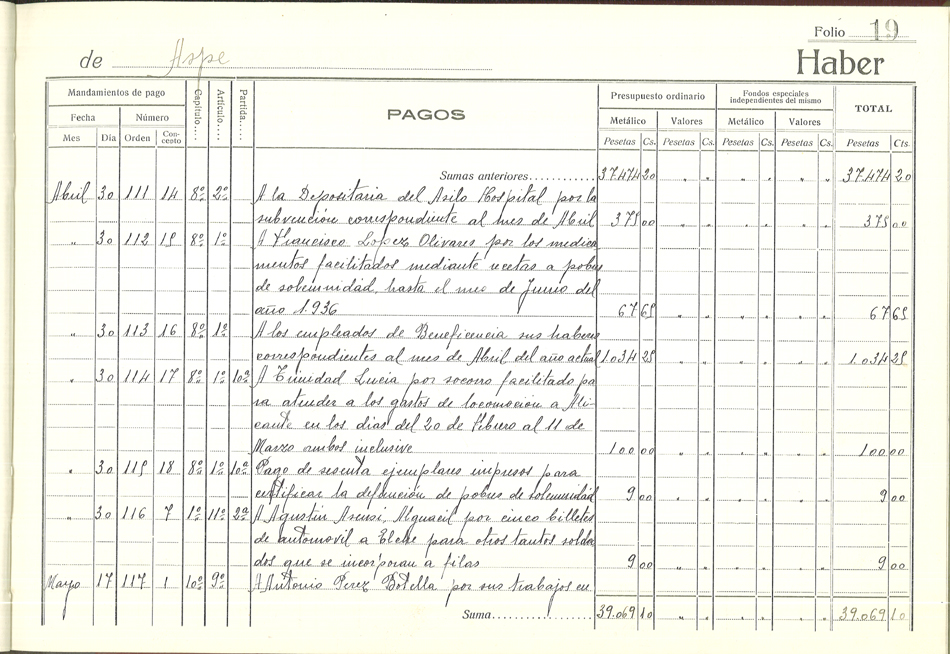 Folio 19
de Aspe Haber
Mandamientos de pago Capítulo.... Artículo.... Partida.... PAGOS Presupuesto ordinario Fondos especiales independientes del mismo TOTAL
Fecha Número Metálico Valores Metálico Valores
Mes Día Orden Concepto Pesetas Cs. Pesetas Cs. Pesetas Cs. Pesetas Cs. Pesetas Cts.
Sumas anteriores............ 37.474 20 " " " " " " 37.474 20
Abril 30 111 14 8º 2º A la Depositaria del Asilo Hospital por la
subvención correspondiente al mes de Abril 375 00 " " " " " " 375 00
" 30 112 15 8º 1º A Francisco Lopez Olivares por los medica
mentos facilitados mediante recetas a pobres
de solemnidad, hasta el mes de Junio del
año 1.936 67 65 " " " " " " 67 65
" 30 113 16 8º 1º A los empleados de Beneficencia sus haberes
correspondientes al mes de Abril del año actual 1.034 25 " " " " " " 1.034 25
" 30 114 17 8º 1º 10ª A Trinidad Lucia por socorro facilitado pa
ra atender a los gastos de locomoción a Ali-
cante en los dias del 20 de Febrero al 11 de
Marzo ambos inclusive 100 00 " " " " " " 100 00
" 30 115 18 8º 1º 10ª Pago de sesenta ejemplares impresos para
certificar la defunción de pobres de solemnidad 9 00 " " " " " " 9 00
" 30 116 7 1º 11º 2ª A Agustin Asensi, Alguacil por cinco billetes
de automovil a Elche para otros tantos solda
dos que se incorporan a filas 9 00 " " " " " " 9 00
Mayo 17 117 1 10º 9º A Antonio Perez Botella por sus trabajos en
Suma...................... 39.069 10 " " " " " " 39.069 10